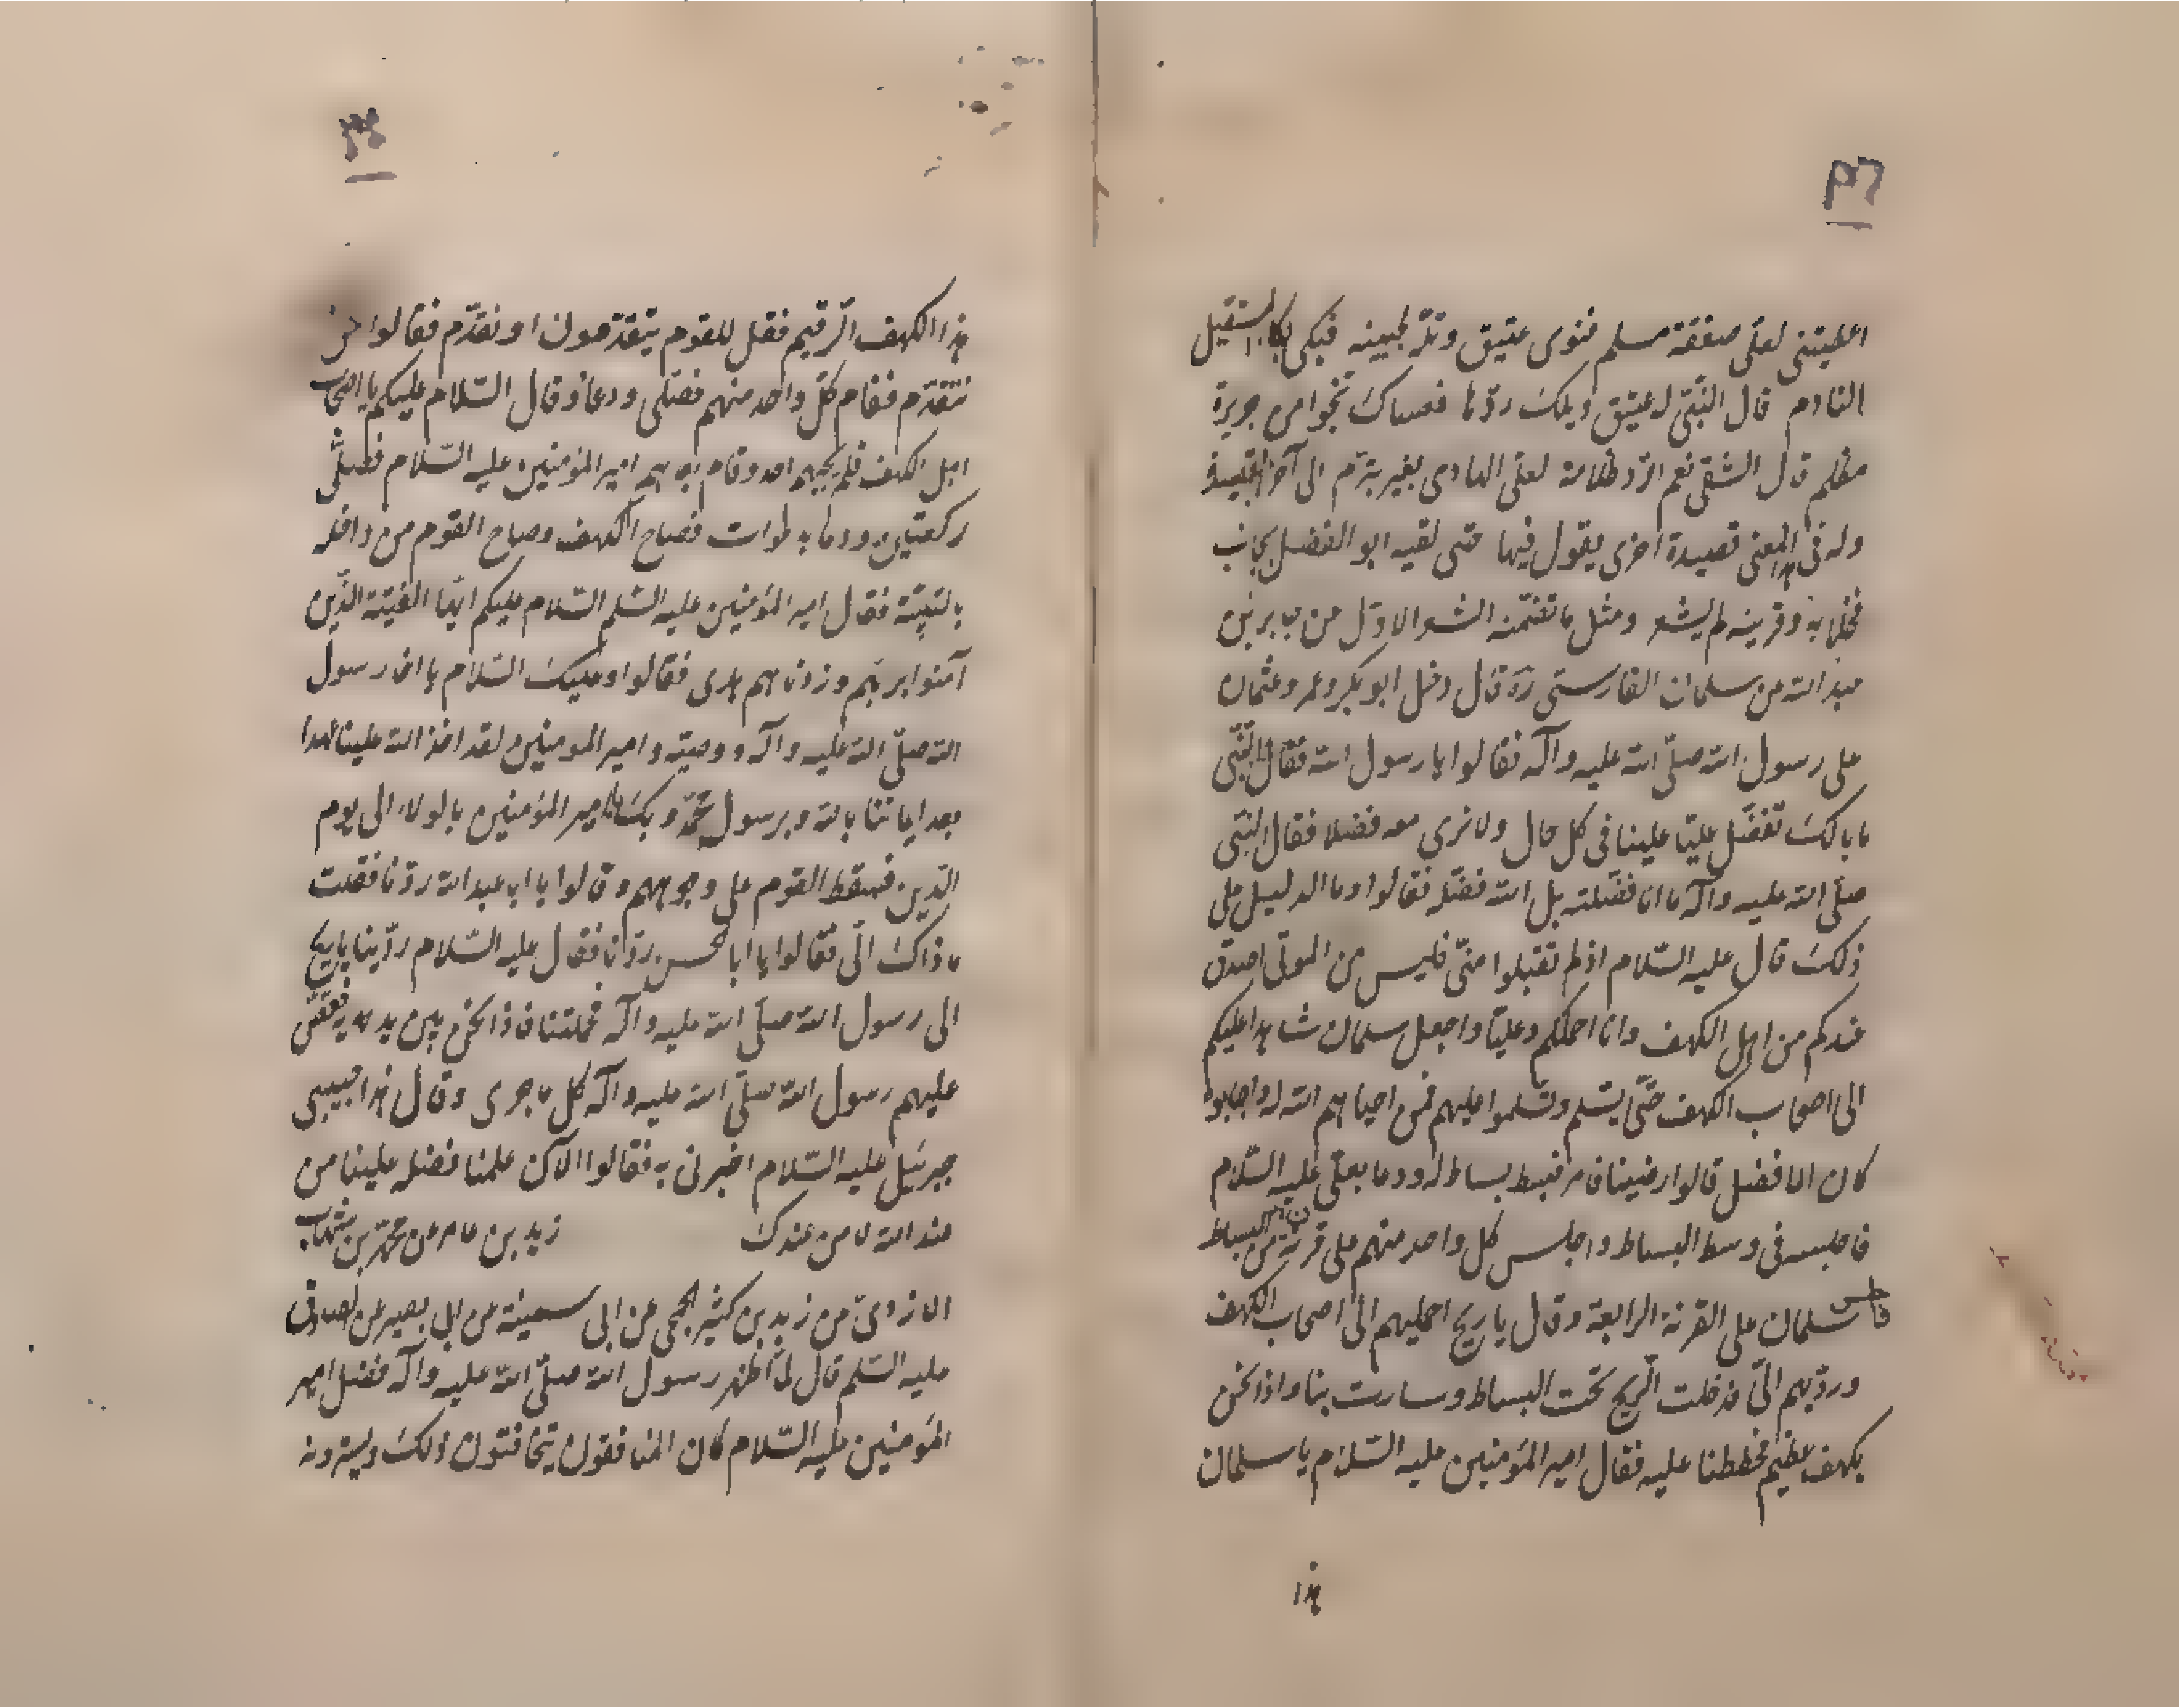 ٣٦
اعطيتنى لعلى صفقة مسلم فنوى عتيق وتلّه لجبينه فبكى بكاء المستقيل
النادم قال النّبى لعتيق ويلك ردّها فعساك تنجوا من جريرة
مظلم قال الشقى نعم اردّ ظلامة لعلى الهادى بغير تبرّم الى آخر القصيدة
وله فى هذا المعنى قصيدة اخرى يقول فيها حتى لقيه ابو الفضل بجانب
فخلا به وقرينه لم يشعر ومثل ما تضمّنه الشعر الاوّل من جابر بن
عبد الله من سلمان الفارستى ره قال دخل ابو بكر وعمر وعثمان
على رسول الله صلّى الله عليه وآله فقالوا يا رسول الله فقال النّبى
ما بالك تفضّل عليّا علينا فى كل حال ولا نرى معه فضلا فقال النّبى
صلّى الله عليه وآله ما انا فضّلته بل الله فضّله فقالوا وما الدليل على
ذلك قال عليه السّلام اذ لم تقبلوا منّى فليس من الموتى اصدق
عندكم من اهل الكهف وانا احملكم وعليّا واجعل سلمان شاهدا عليكم
الى اصحاب الكهف حتّى يسّلم وتسلموا عليهم فمن احياهم الله له واجابوه
كان الافضل قالوا رضينا فامر فبسط بساط له ودعا بعلى عليه السّلام
فاجلسه فى وسط البساط واجلس كل واحد منهم على قرنة من البساط
واجلس سلمان على القرنة الرابعة وقال يا ريح احمليهم الى اصحاب الكهف
وردّيهم الىّ فدخلت الّريح تحت البساط وسارت بنا واذا نحن
بكهف عظيم فحططنا عليه فقال امير المؤمنين عليه السّلام يا سلمان
هذا
هذا الكهف الّرقيم فقل للقوم يتقدّمون او نتقدّم فقالوا نحن
نتقدّم فقام كلّ واحد منهم فصلّى ودعا وقال السّلام عليكم يا اصحاب
اهل الكهف فلم يجبهم احد وقام بعدهم امير المؤمنين عليه السّلام فصلّى
ركعتين ودعا بدعوات فصاح الكهف وصاح القوم من داخله
بالتلبية فقال امير المؤمنين عليه السّلم السّلام عليكم ايّها الفتية الذّين
آمنوا بربّهم وزدناهم هدى فقالوا وعليك السّلام يا اخا رسول
الله صلّى الله عليه وآله ووصيّه وامير المومنين لقد اخذ الله علينا عهدا
بعد ايماننا بالله وبرسوله محمّد وبك يا امير المؤمنين بالولاء الى يوم
الدّين فسقط القوم على وجوههم وقالوا يا ابا عبد الله ردّنا فقلت
ما ذاك الىّ فقالوا يا ابا الحسن ردّنا فقال عليه السّلام ردّينا يا ريح
الى رسول الله صلّى الله عليه وآله فحملتنا فاذا نحن بين يديه فقصّ
عليهم رسول الله صلّى الله عليه وآله كل ما جرى وقال هذا حبيبى
جبرئيل عليه السّلام اخبرنى به فقالوا الآن علمنا فضله علينا من
عند الله لا من عندك زيد بن عامر عن محمّد بن شهاب
الازدىّ من زيد بن كثير الجمحى عن ابى سمينة عن ابى بصير عن الصادق
عليه السّلم قال لمّا اظهر رسول الله صلّى الله عليه وآله فضل امير
المؤمنين عليه السّلام كان المنافقون يتخافتون ذلك ويسترونه